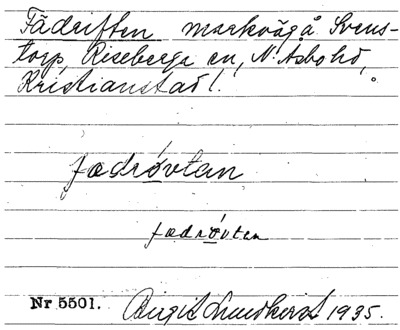 Fädriften markväg å Svens-
torp, Riseberga sn, N. Åsbo hd,
Kristianstad l.
fædrovtan
fædrovtan
Nr 5501. Birgit Lundkvist 1935.